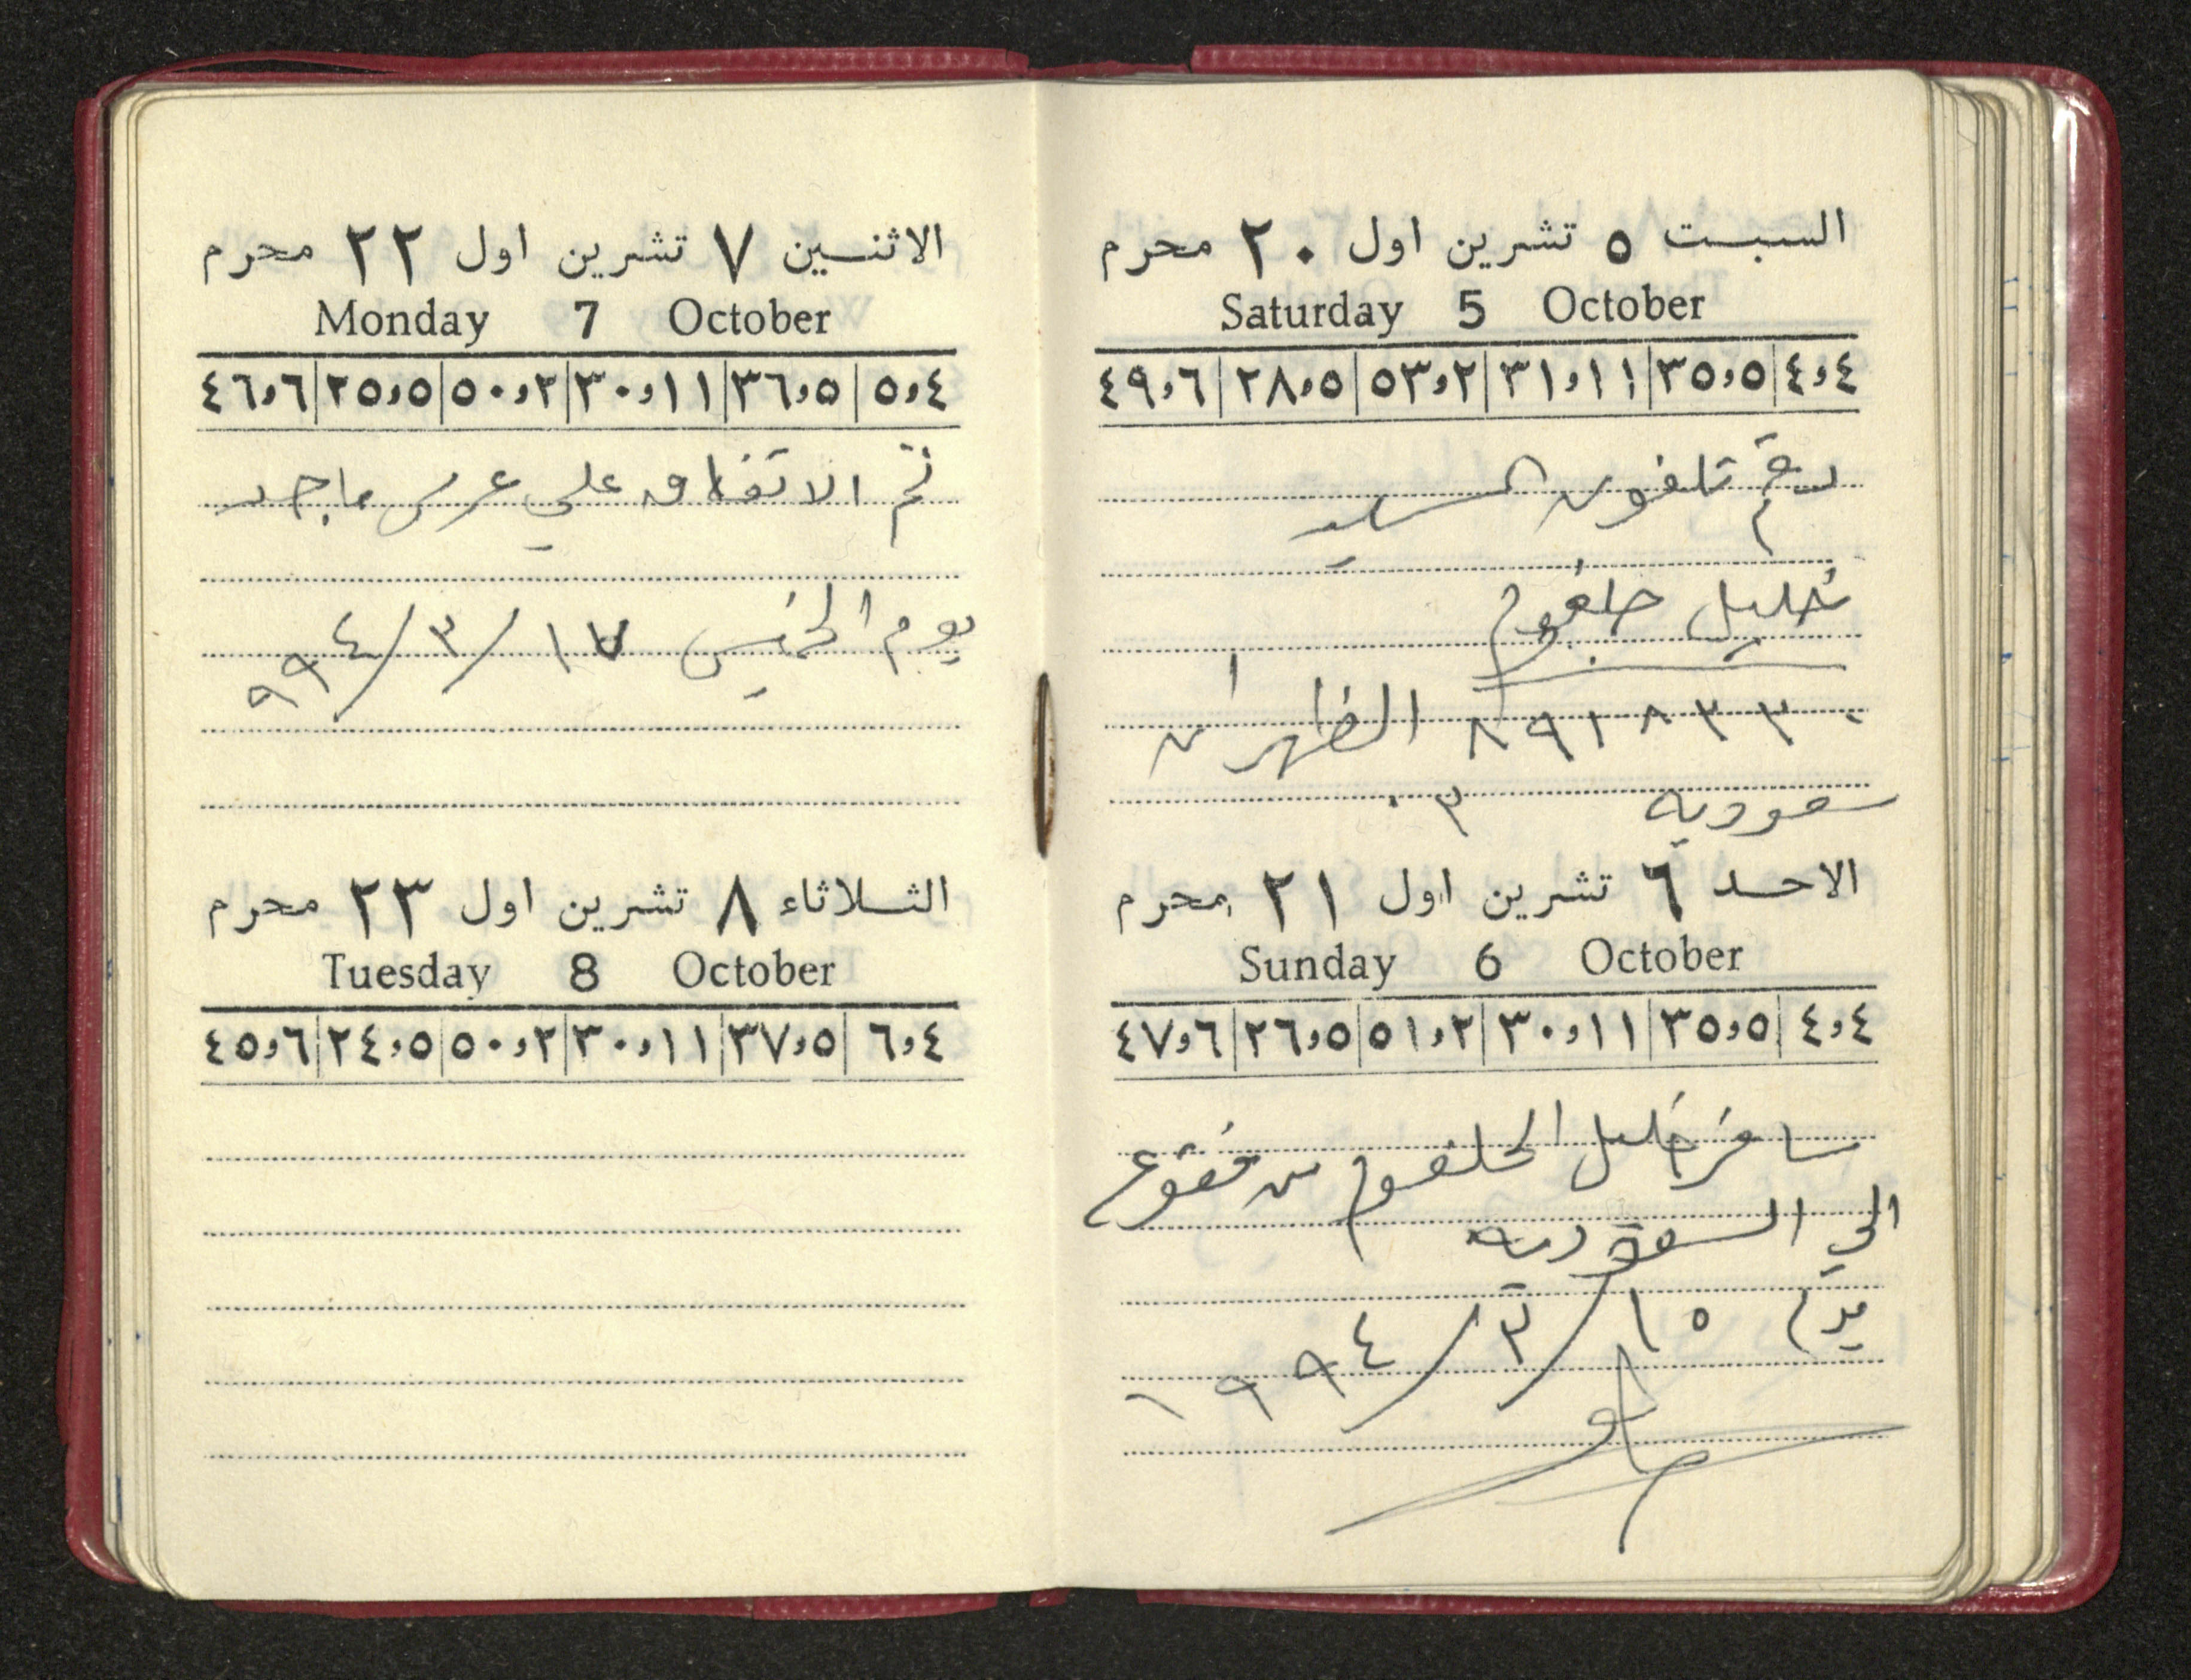 السبت ٥ تشرين اول ٢٠ محرم
Saturday 5 October
٤,٤ ٣٥,٥ ٣١,١١ ٥٣,٢ ٢٨,٥ ٤٩,٦
رقم تلفون السيد
خليل حلقوم
٨٩١٨٣٣٠ الظهران
سعوديه ٠٣
الاحد ٦ تشرين اول ٢١ محرم
Sunday 6 October
٤,٤ ٣٥,٥ ٣٠,١١ ٥١,٢ ٢٦,٥ ٤٧,٦
سافر خليل الحلقوم من فقوع
الى السعوديه
يوم ١٥/٣/١٩٩٤
الاثنين ٧ تشرين اول ٢٢ محرم
Monday 7 October
٥,٤ ٣٦,٥ ٣٠,١١ ٥٠,٢ ٢٥,٥ ٤٦,٦
تم الاتفاق علي عرس ماجد
يوم الخميس ١٧/٣/٩٩٤
الثلاثاء ٨ تشرين اول ٢٣ محرم
Tuesday 8 October
٦,٤ ٣٧,٥ ٣٠,١١ ٥٠,٢ ٢٤,٥ ٤٥,٦